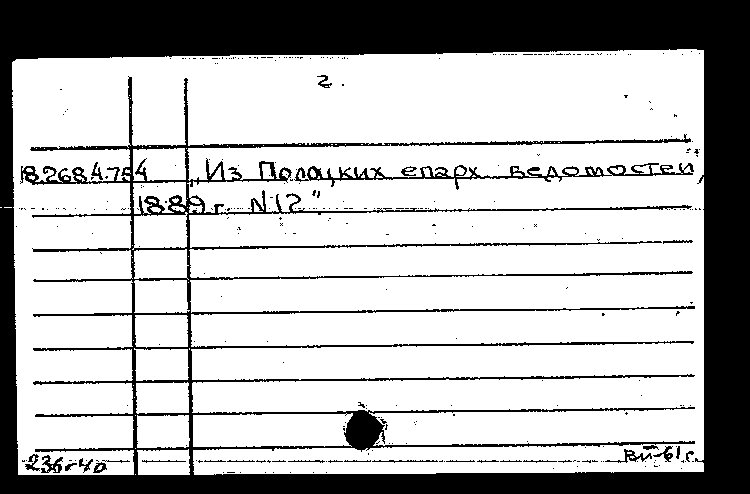 2.
18.268.4.754 „Из Полоцких епарх ведомостей,
1889 г. N12"
236-40
ВЙ-61 г.